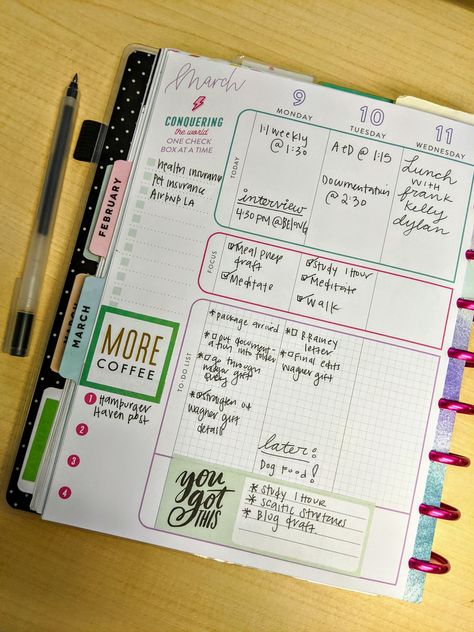 March
CONQUERING
the world
ONE CHECK
BOX AT A TIME
health insurance
Pet insurance
Airbnb LA
FEBRUARY
MARCH
MORE
COFFEE
1 Hamburger
Haven post
2
3
4
9
MONDAY
10
TUESDAY
11
WEDNESDAY
TODAY
1:1 weekly
@ 1:30
interview
4:30 PM @
A+D @ 1:15
Documentation
@ 2:30
Lunch
with
frank
kelly
dylan
FOCUS
Meal prep
draft
Meditate
Study 1 Hour
Meditate
Walk
TO-DO LIST
* package arrived
* put document-
ation into folder
* go through
wagner gift
* straighten out
wagner gift
details
* Brainey
letter
* Final edits
wagner gift
later:
Dog Food!
you
got
THIS
* Study 1 Hour
* sciatic stretches
* Blog draft